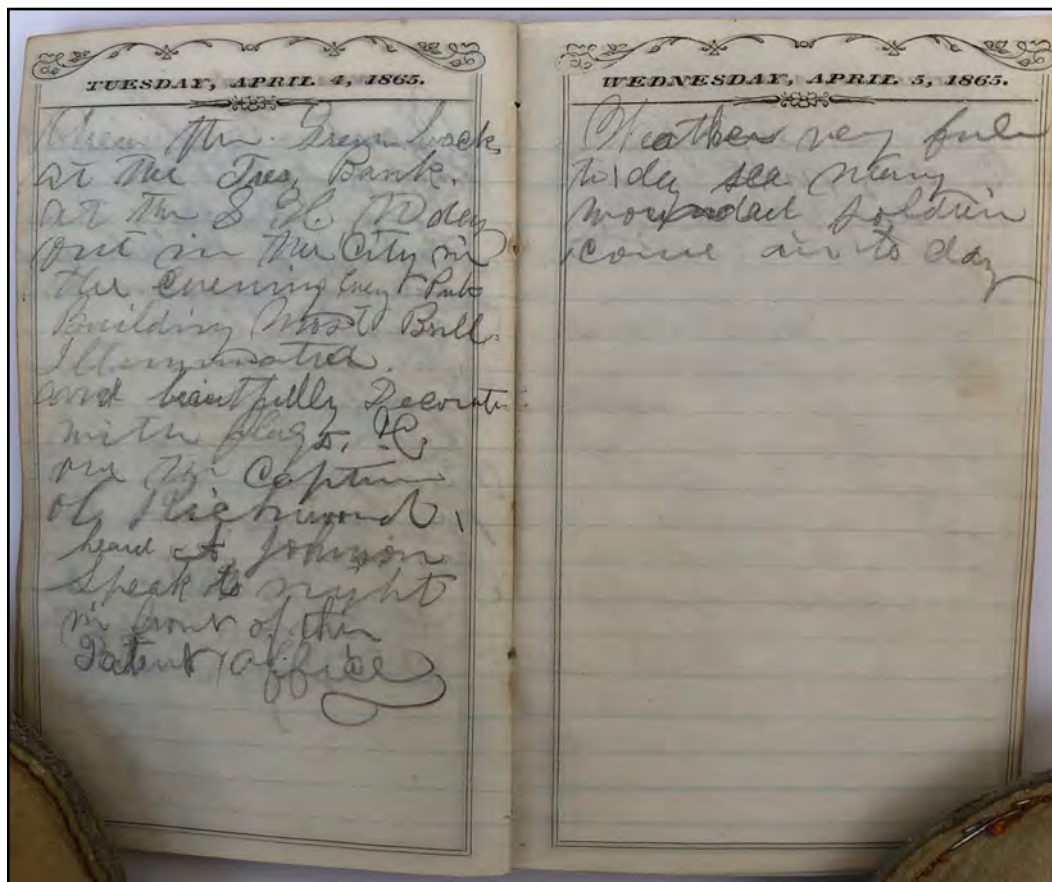 TUESDAY, APRIL 4, 1865.
the Green back
at the Tres, Bank.
at the S H. To day
out in the City in
the evening Evey Pub
Building Most Brill
Illuminated.
and beautfully Decorate
with flags, &C,
on the Capture
of Richmond,
heard A, Johnson
Speak to night
in front of the
Patent Office
WEDNESDAY, APRIL 5, 1865.
Weather very fine
to day see many
wounded soldier
come in to day